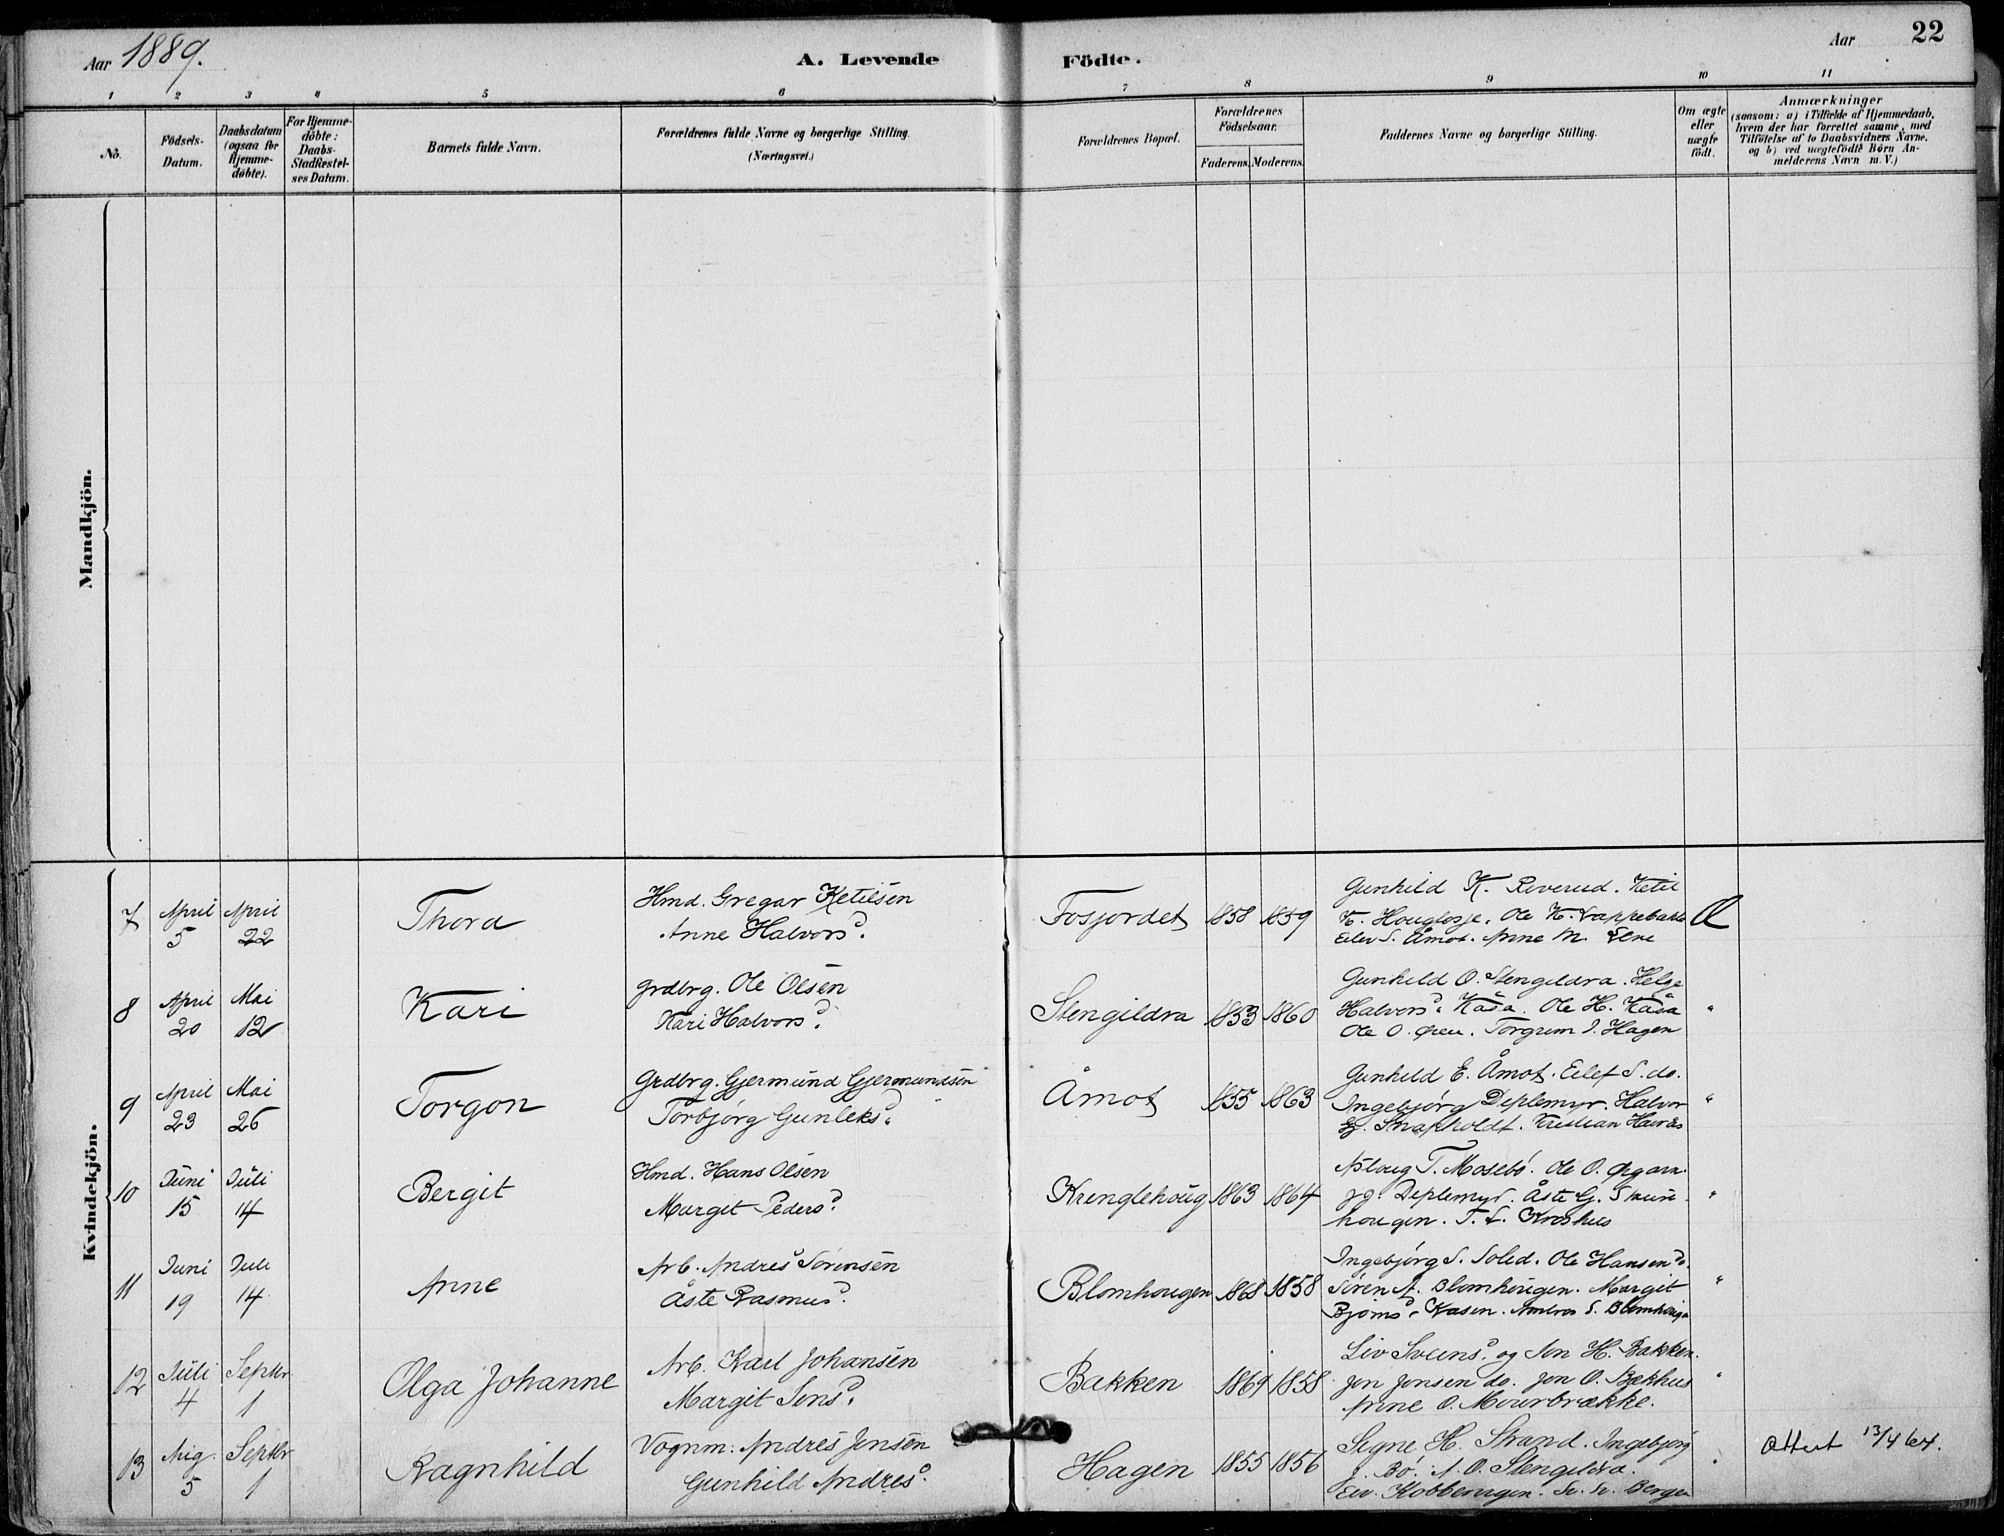 Aar 1889.
A. Levende Födte.
Aar
22
1 2 3 4 5 6 7 8 9 10 11
No.
Födsels-Datum.
Daabsdatum (ogsaa for Hjemme-döbte).
For Hjemme-döbte: Daabs-Stadfæstel-ses Datum.
Barnets fulde Navn.
Forældrenes fulde Navne og borgerlige Stilling. (Næringsvei.)
Forældrenes Bopæl.
Forældrenes Födselsaar.
Faderens. Moderens.
Faddernes Navne og borgerlige Stilling.
Om ægte eller uægte födt.
Anmærkninger
(saasom: a) i Tilfælde af Hjemmedaab,
hvem der har forrettet samme, med
Tilföielse af to Daabsvidners Navne,
og b) ved uægtefödte Börn An-
melderens Navn m. V.)
Mandkjön.
Kvindekjön.
7 April 5 April 22 Thora
Hmd. Gregar Ketilsen
Anne Halvorsd.
Fosjordet 1858 1859
Gunhild K. Roverud. Ketil
K. Houglosje. Ole K.
Eilev S. Åmot. Anne M.
8 April 20 Mai 12 Kari
Grdbrg. Ole Olsen
Kari Halvorsd.
Stengildra 1853 1860
Gunhild O. Stengildra. Helge
Halvorsd. Kåsa. Ole H. Kåsa
Ole O. Øren. Torgrim J. Hagen "
9 April 23 Mai 26 Torgon
Grdbrg. Gjermund Gjermundsen
Torbjørg Gunleksd.
Åmot 1855 1863
Gunhild E. Åmot. Eilef S. do.
Ingebjørg Deplemyr. Halvor
Knapholdt. Kristian "
10 Juni 15 Juli 14 Bergit
Hmd. Hans Olsen
Margit Pedersd.
Krenglehoug 1863 1864
Aslaug T. Mosebø. Ole O.
Deplemyr. Åste G.
hougen. T. L. Kroshus "
11 Juni 19 Juli 14 Anne
Arb. Andres Sørensen
Åste Rasmusd.
Blomhougen 1868 1858
Ingebjørg S. Solid. Ole Hansen
Søren A. Blomhougen. Margit
Bjørnsd. Kåsen. Andres S. Blomhougen "
12 Juli 4 Septbr 1 Olga Johanne
Arb. Karl Johansen
Margit Jonsd.
Bakken 1869 1858
Liv Sveinsd. og Jon H. Bakken.
Jon Jonsen do. Jon O. Bækhus
Anne O. Mourbrække. "
13 Aug. 5 Septbr 1 Ragnhild
Vognm. Andres Jensen
Gunhild Andresd.
Hagen 1855 1856
Signe H. Strand. Ingebjørg
J. Bø. A. O. Stengildra. "
Attest 13/4 64.